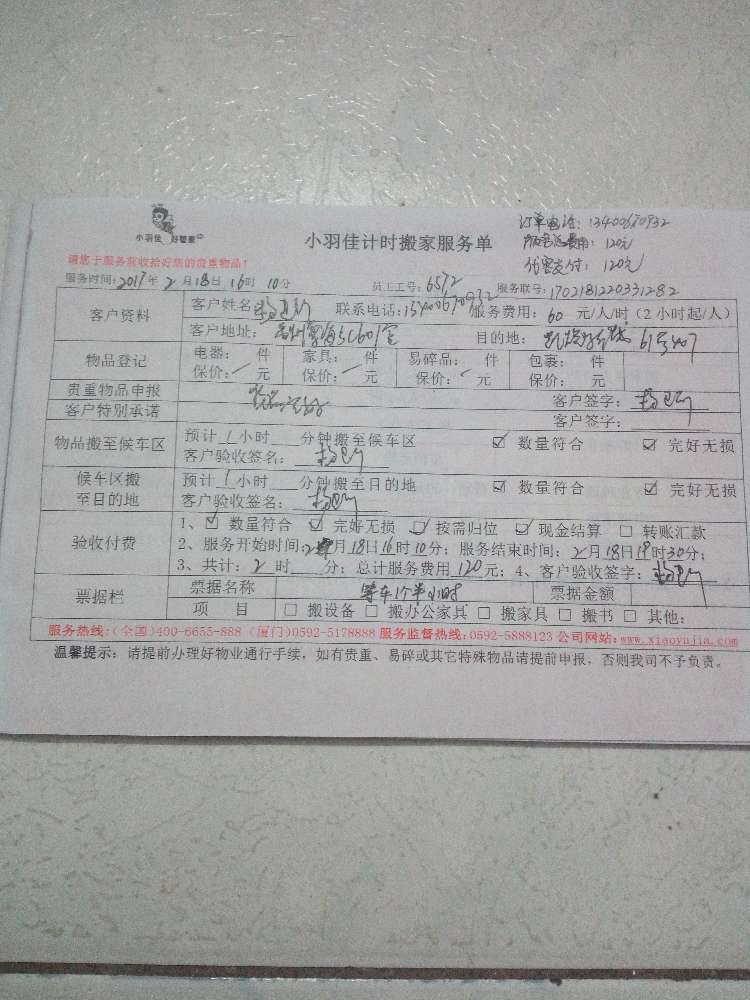 订单电话：13400670932
小羽佳 好管家
小羽佳计时搬家服务单
服务费用：120元
请您于服务前收拾好您的贵重物品！
代客支付：120元
服务时间：2017年 2 月18日 16时 10分 员工工号：6572 服务联号：1702181220331282
客户资料
客户姓名： 联系电话：13400670932 服务费用：60 元/人/时（2小时起/人）
客户地址： 目的地： 61号407
物品登记
电器： 件 家具： 件 易碎品： 件 包裹： 件
保价： 元 保价： 元 保价： 元 保价： 元
贵重物品申报 客户签字：
客户特别承诺 客户签字：
物品搬至候车区
预计 1 小时 分钟搬至候车区 ☑ 数量符合 ☑ 完好无损
客户验收签名：
候车区搬至目的地
预计 1 小时 分钟搬至目的地 ☑ 数量符合 ☑ 完好无损
客户验收签名：
验收付费
1、☑ 数量符合 ☑ 完好无损 ☑ 按需归位 ☑ 现金结算 □ 转账汇款
2、服务开始时间：2月18日16时10分；服务结束时间：2月18日19时30分；
3、共计：2 时 分；总计服务费用 120元；4、客户验收签字：
票据栏
票据名称 等车1个半小时 票据金额
项 目 □ 搬设备 □ 搬办公家具 □ 搬家具 □ 搬书 □ 其他：
服务热线：（全国）400-6655-888（厦门）0592-5178888 服务监督热线：0592-5888123 公司网站：www.xiaoyujia.com
温馨提示：请提前办理好物业通行手续，如有贵重、易碎或其它特殊物品请提前申报，否则我司不予负责。